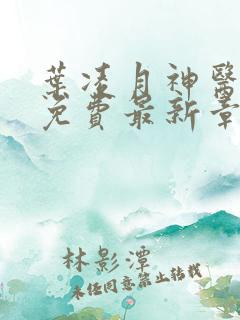 葉凌月神醫
免費最新章
林影潭
未經同意禁止轉載